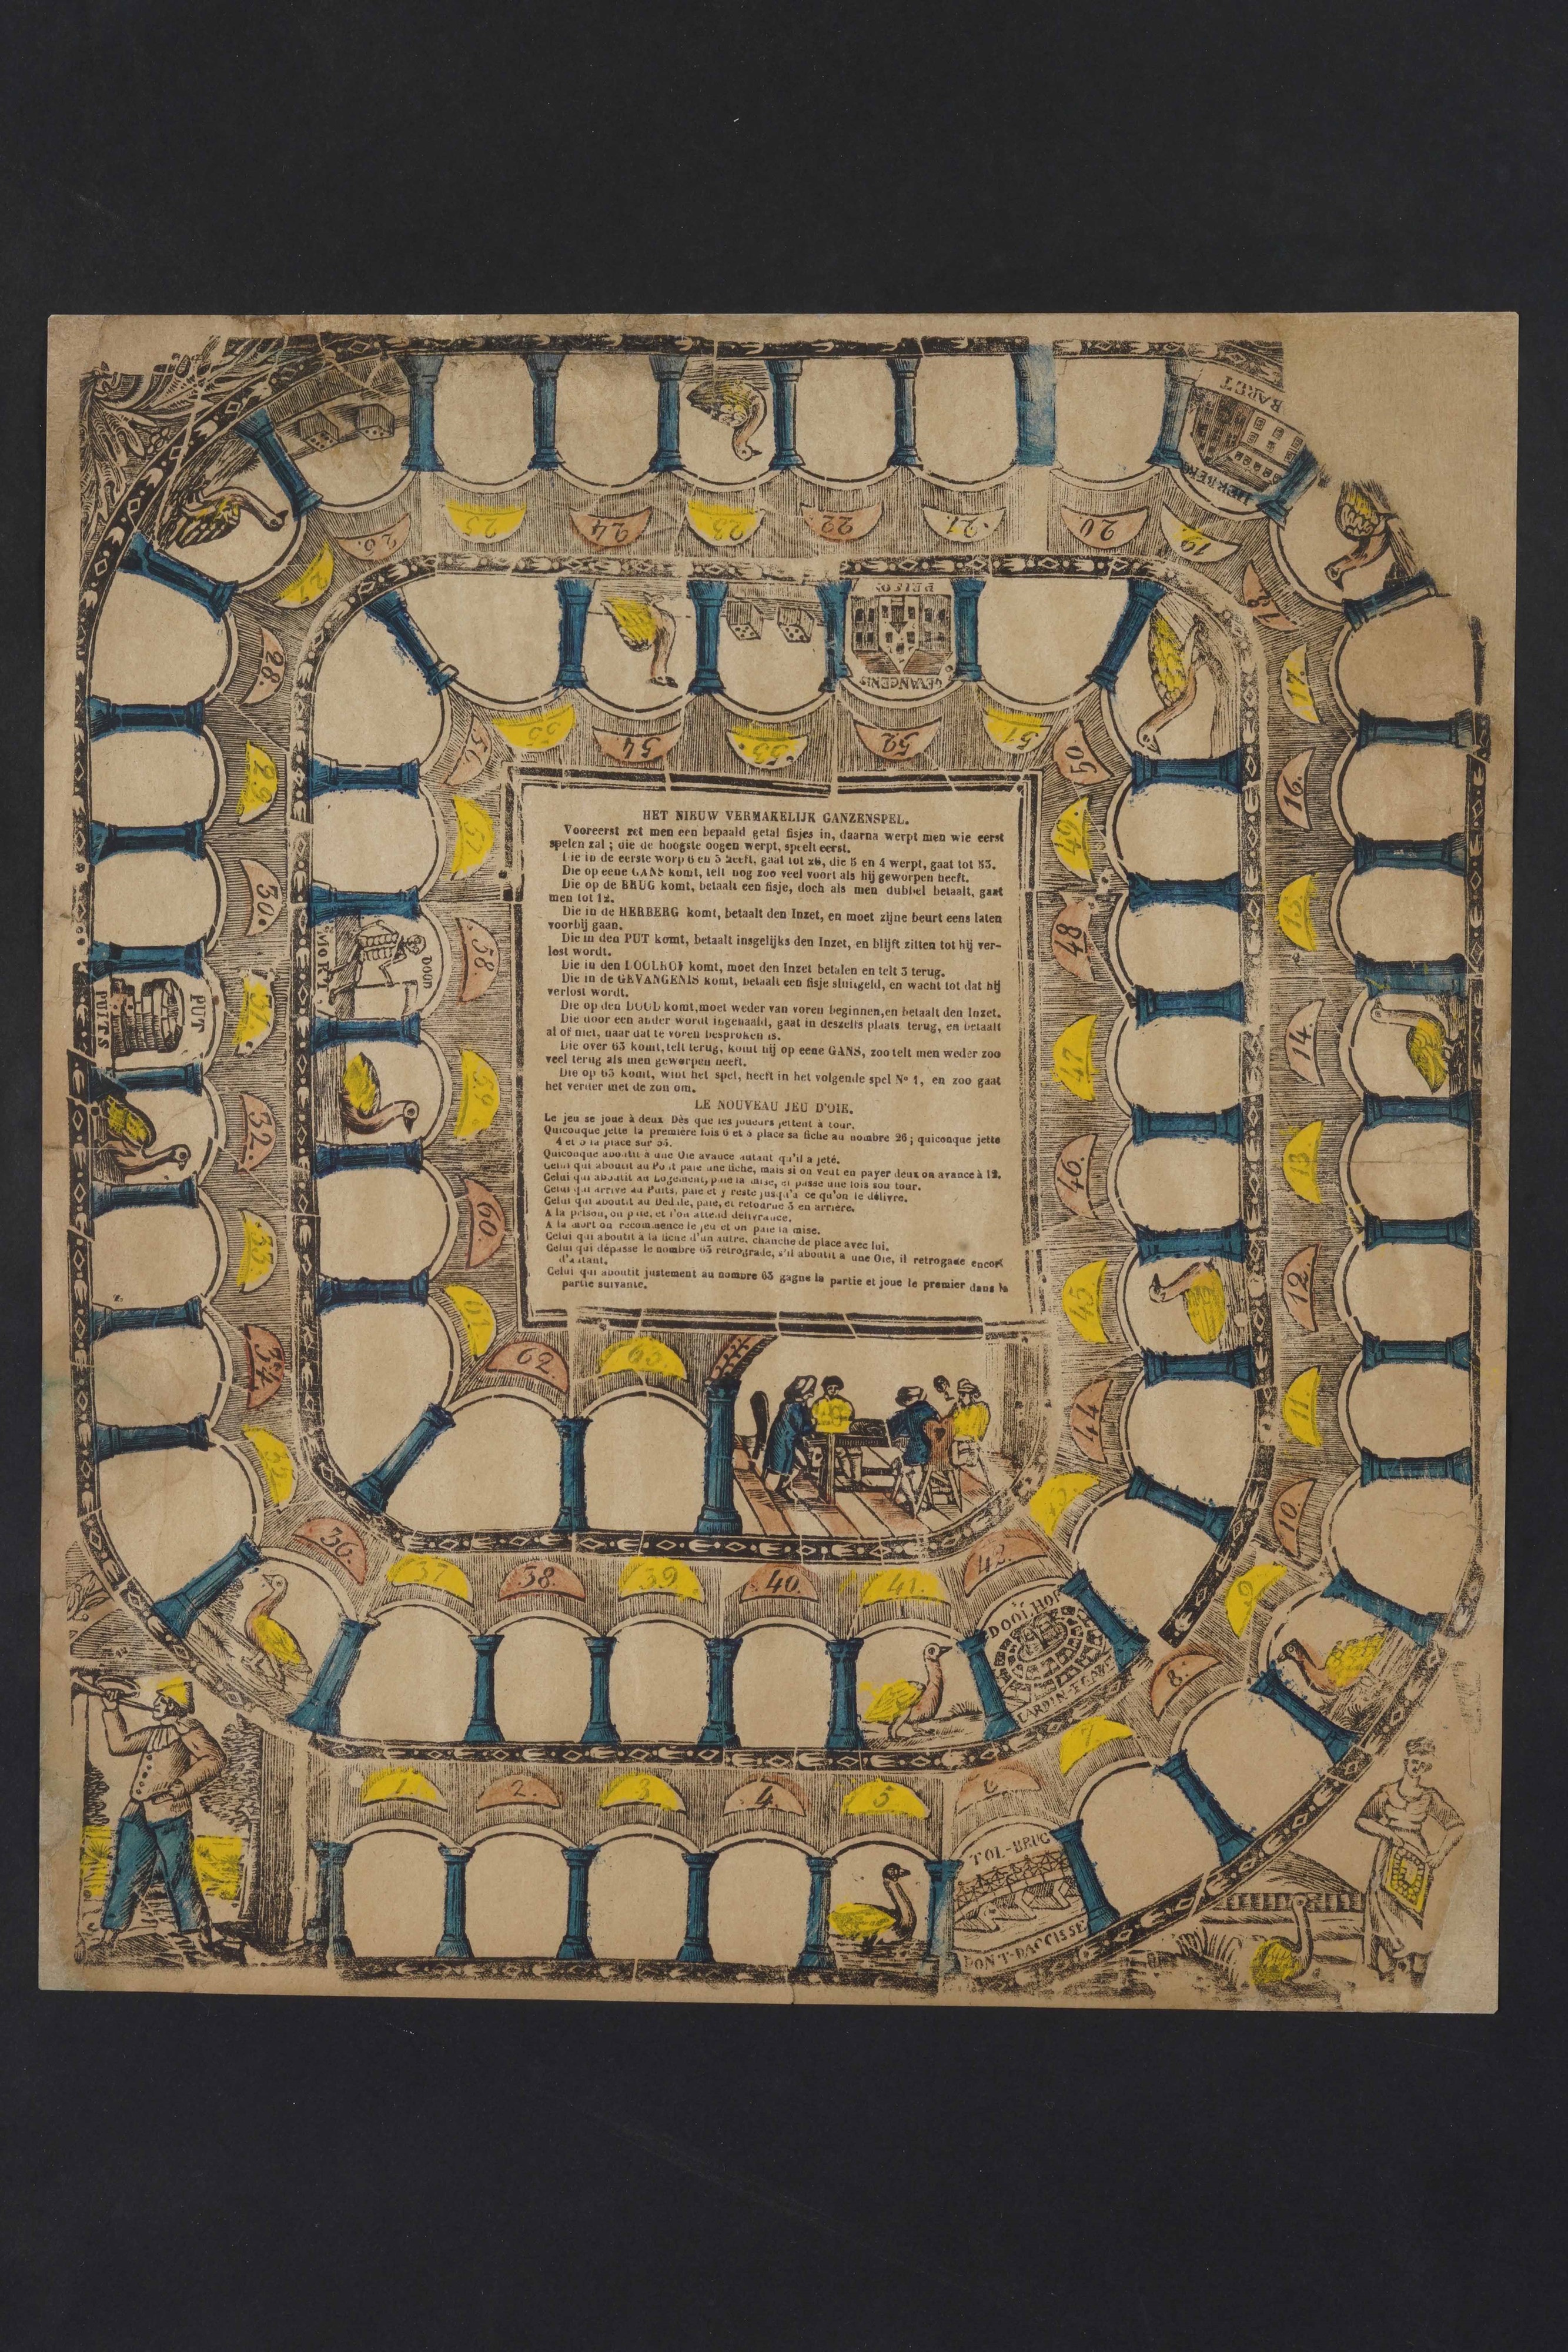 HET NIEUW VERMAKELIJK GANZENSPEL.
Vooreerst zet men een bepaald getal fisjes in, daarna werpt men wie eerst
spelen zal ; die de hoogste oogen werpt, speelt eerst.
Die in de eerste worp 6 en 3 heeft, gaat tot 26, die 5 en 4 werpt, gaat tot 53.
Die op eene GANS komt, telt nog zoo veel voort als hij geworpen heeft.
Die op de BRUG komt, betaalt een fisje, doch als men dubbel betaalt, gaat
men tot 12.
Die in de HERBERG komt, betaalt den Inzet, en moet zijne beurt eens laten
voorbij gaan.
Die in den PUT komt, betaalt insgelijks den Inzet, en blijft zitten tot hij ver-
lost wordt.
Die in den DOOLHOF komt, moet den Inzet betalen en telt 3 terug.
Die in de GEVANGENIS komt, betaalt een fisje sluitgeld, en wacht tot dat hij
verlost wordt.
Die op den DOOD komt, moet weder van voren beginnen, en betaalt den Inzet.
Die door een ander wordt ingehaald, gaat in deszelfs plaats terug, en betaalt
al of niet, naar dat te voren besproken is.
Die over 63 komt, telt terug, komt hij op eene GANS, zoo telt men weder zoo
veel terug als men geworpen heeft.
Die op 63 komt, wint het spel, heeft in het volgende spel No 1, en zoo gaat
het verder met de zon om.
LE NOUVEAU JEU D'OIE.
Le jeu se joue à deux Dès que les joueurs jettent à tour.
Quiconque jette la première fois 6 et 3 place sa fiche au nombre 26 ; quiconque jette
4 et 5 la place sur 53.
Quiconque aboutit à une Oie avance autant qu'il a jeté.
Celui qui aboutit au Pont paie une fiche, mais si on veut en payer deux on avance à 12.
Celui qui aboutit au Logement, paie la mise, et passe une fois son tour.
Celui qui arrive au Puits, paie et y reste jusqu'à ce qu'on le délivre.
Celui qui aboutit au Dédale, paie, et retourne 3 en arrière.
A la prison, on paie, et l'on attend délivrance.
A la mort on recommence le jeu et on paie la mise.
Celui qui aboutit à la fiche d'un autre, chanche de place avec lui.
Celui qui dépasse le nombre 63 rétrograde, s'il aboutit à une Oie, il retrogade encore
d'autant.
Celui qui aboutit justement au nombre 63 gagne la partie et joue le premier dans la
partie suivante.
1.
2.
3
4
5
6
TOL-BRUG
PONT-D'ACCISSE
7
8.
9
10.
11.
12.
13
14
15
16
17.
18.
19
HERBERG
BARET
20
21.
22
23
24
25
26.
27
28.
29
30.
31.
PUT
PUITS
32.
33
34.
32
36.
37
38.
39
40.
41.
42.
DOOLHOF
43.
44
45
46.
47
48
49.
50
51
52
GEVANGENIS
53.
54
55
56.
57
58
DOOD
MORT
59
60.
61
62
63.